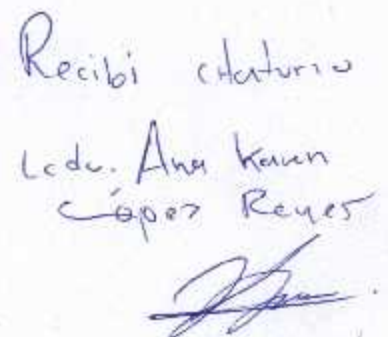 Recibí citatorio
Lcda. Ana Karen
López Reyes